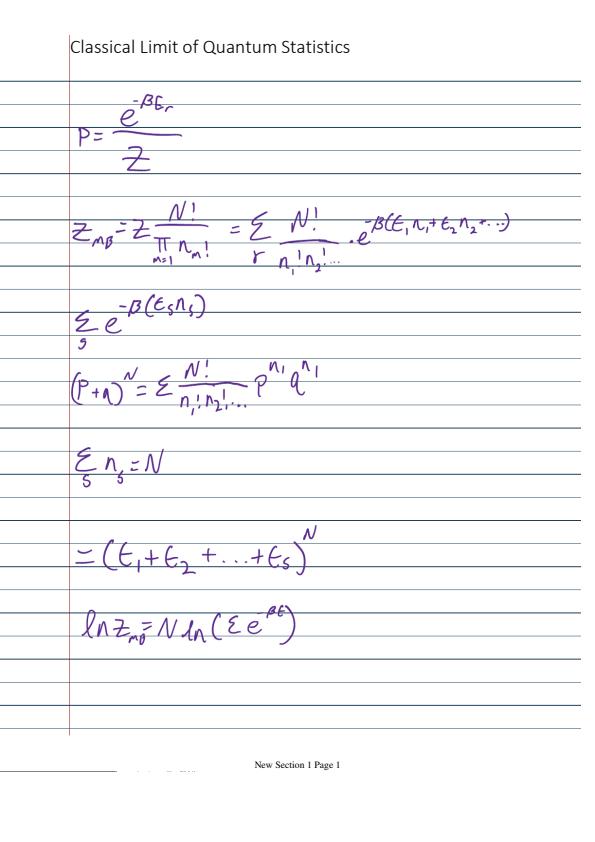 Classical Limit of Quantum Statistics
P = e^{-βE_r} / Z
Z_{MB} = Z N! / ∏_{m=1} n_m! = Σ_r N! / n_1! n_2! ... · e^{-β(ε_1 n_1 + ε_2 n_2 + ...)}
Σ_s e^{-β(ε_s n_s)}
(P+q)^N = Σ N! / n_1! n_2! ... P^{n_1} q^{n_1}
Σ_s n_s = N
= (ε_1 + ε_2 + ... + ε_s)^N
ln Z_{MB} = N ln (Σ e^{-βε})
New Section 1 Page 1